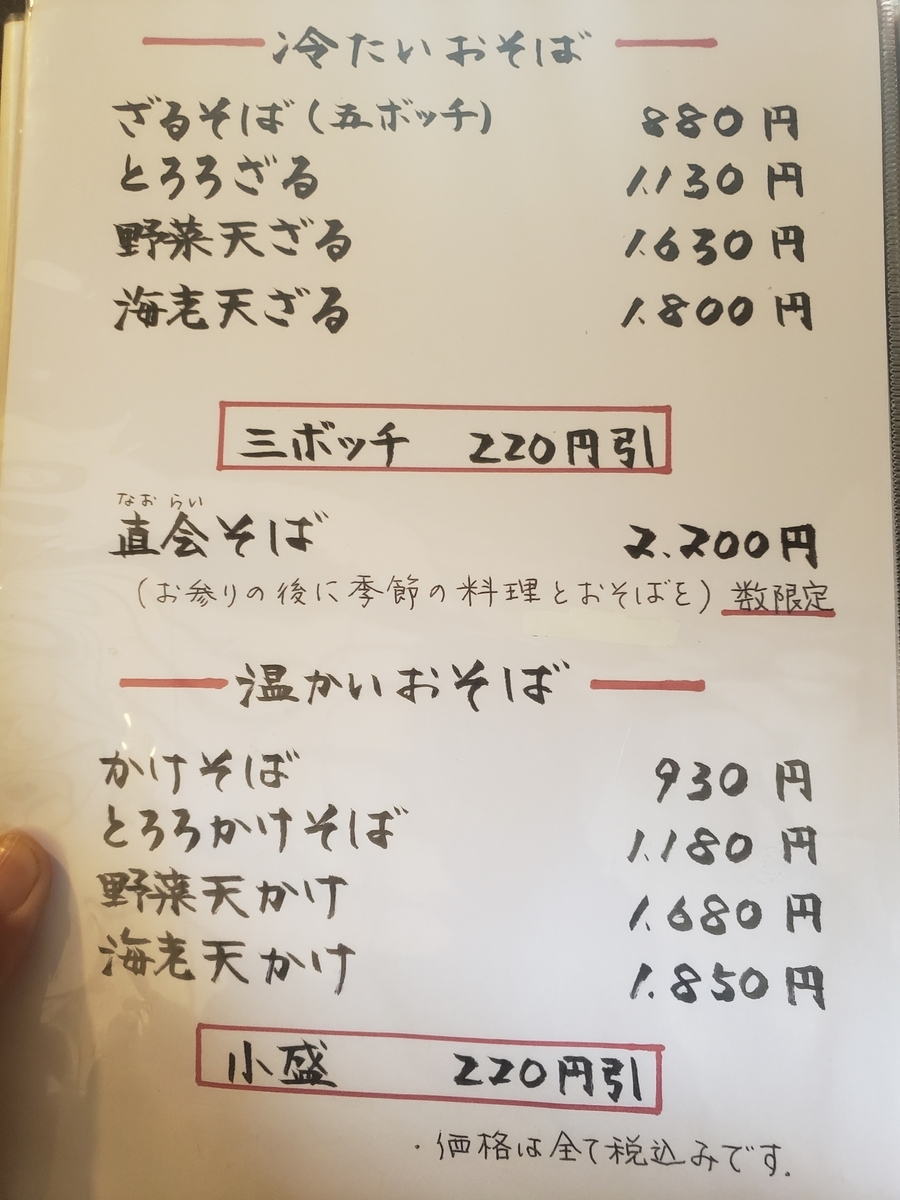 冷たいおそば
ざるそば(五ボッチ) 880円
とろろざる 1.130円
野菜天ざる 1.630円
海老天ざる 1.800円
三ボッチ 220円引
なおらい
直会そば 2.200円
(お参りの後に季節の料理とおそばを) 数限定
温かいおそば
かけそば 930円
とろろかけそば 1.180円
野菜天かけ 1.680円
海老天かけ 1.850円
小盛 220円引
・価格は全て税込みです.